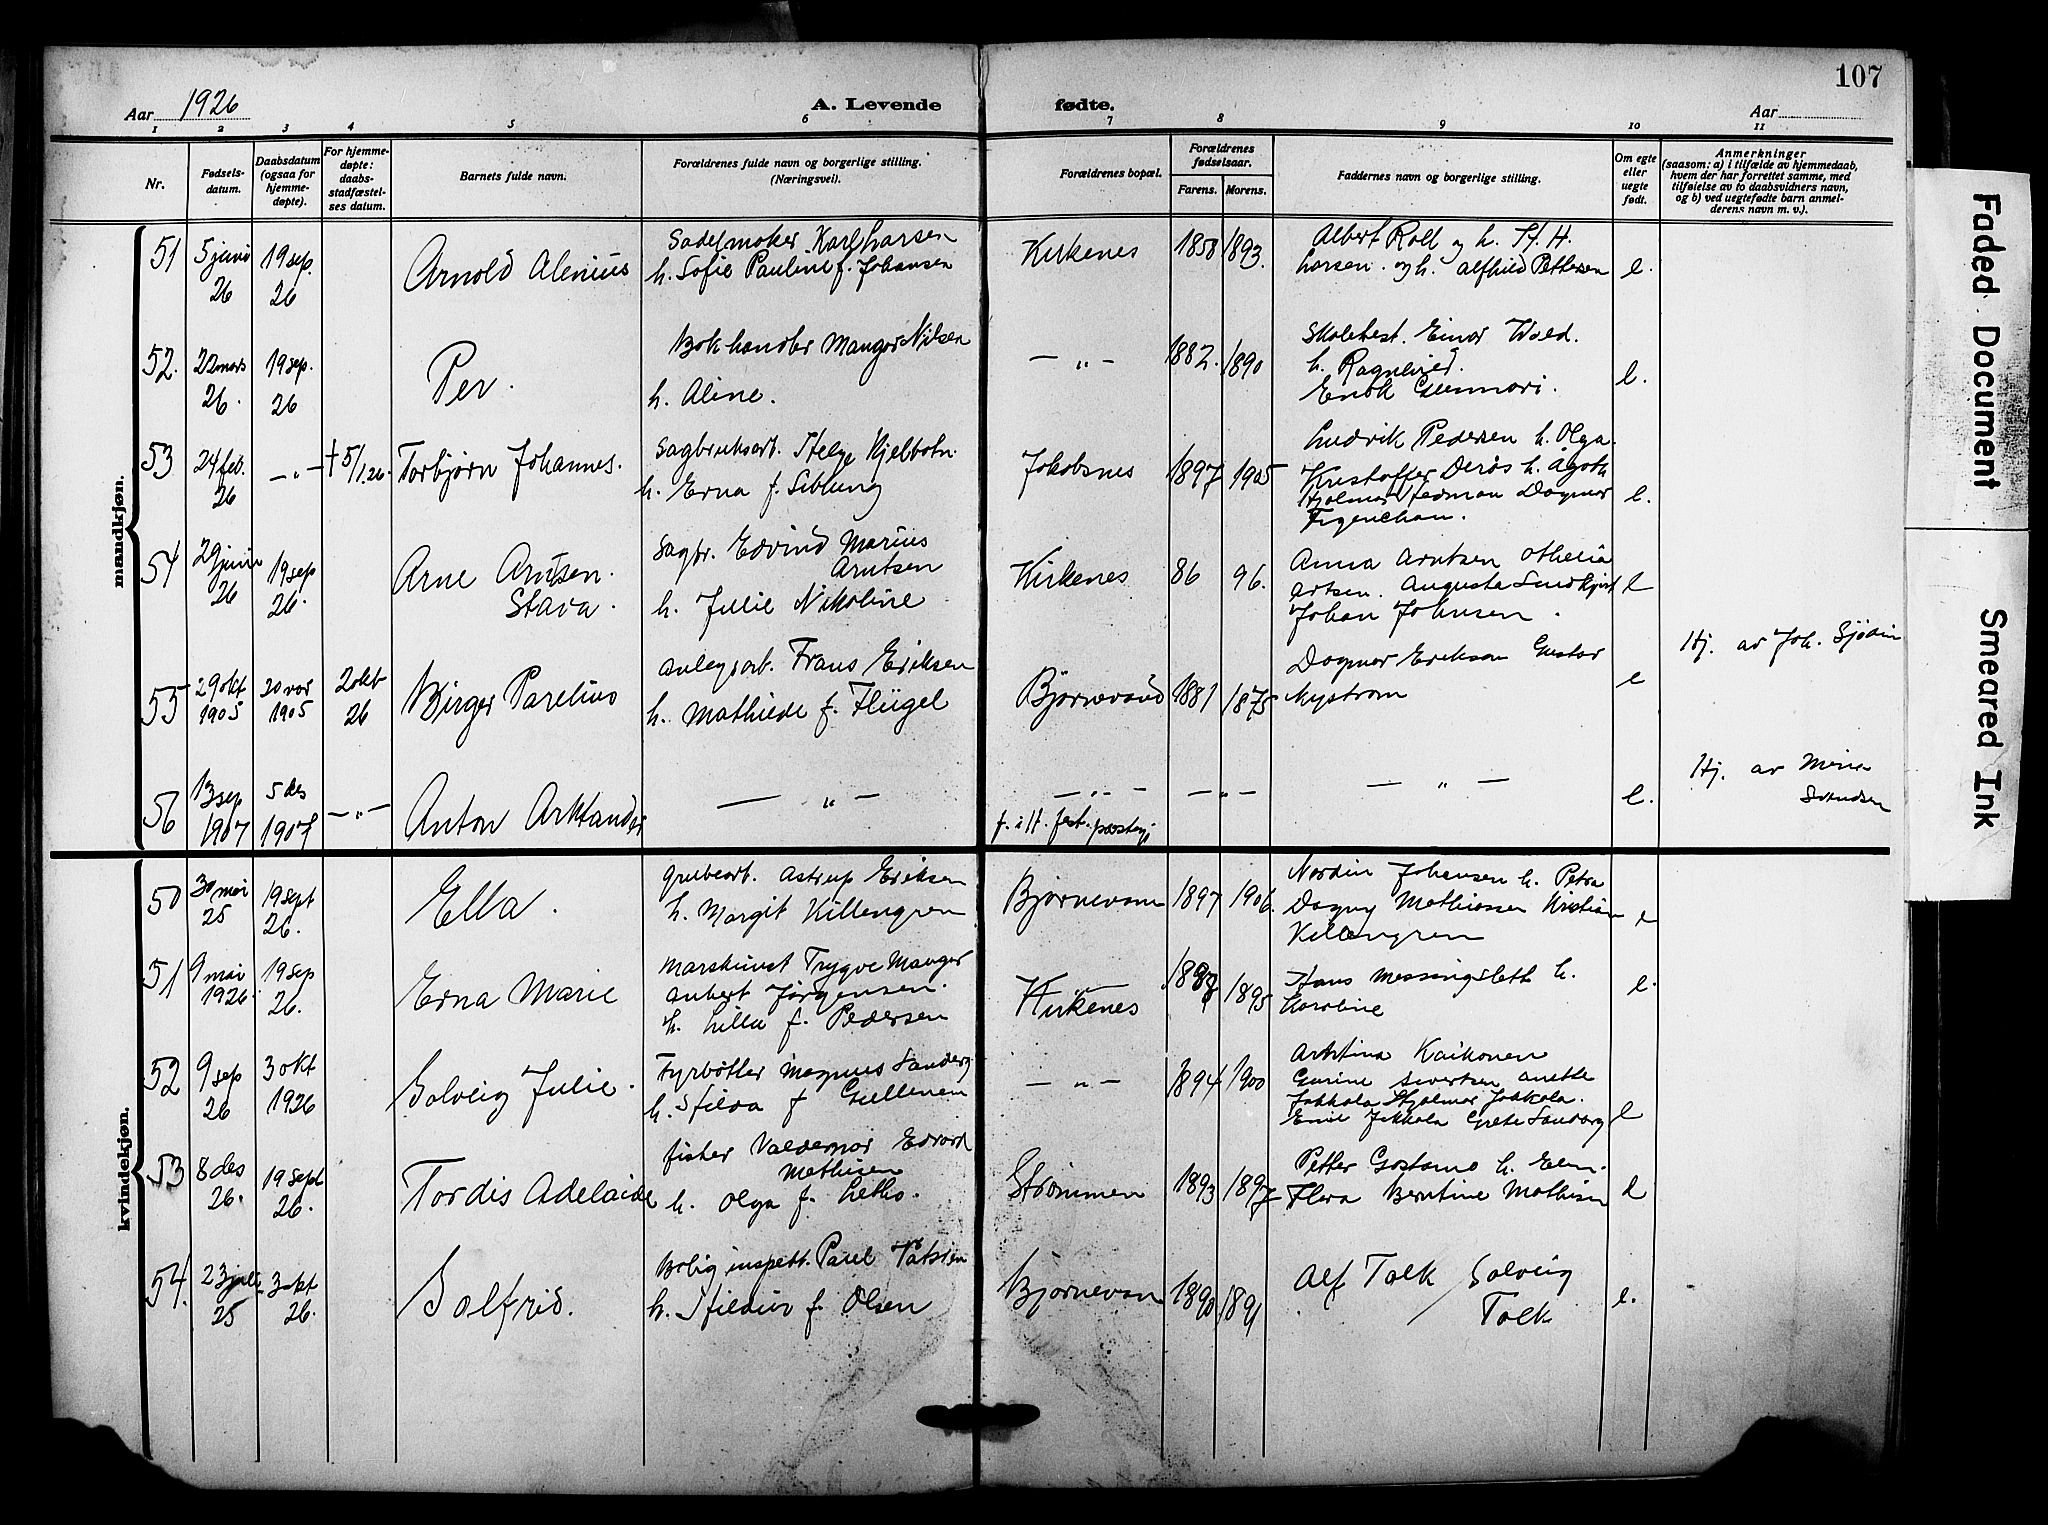 107
Aar 1926
A. Levende fødte.
Aar
1 2 3 4 5 6 7 8 9 10 11
Nr.
Fødsels-
datum.
Daabsdatum
(ogsaa for
hjemme-
døpte).
For hjemme-
døpte:
daabs-
stadfæstel-
ses datum.
Barnets fulde navn.
Forældrenes fulde navn og borgerlige stilling.
(Næringsvei).
Forældrenes bopæl.
Forældrenes
fødselsaar.
Farens. Morens.
Faddernes navn og borgerlige stilling.
Om egte
eller
uegte
født.
Anmerkninger
(saasom: a) i tilfælde av hjemmedaab,
hvem der har forrettet samme, med
tilføielse av to daabsvidners navn,
og b) ved uegtefødte barn anmel-
derens navn m. v.).
mandkjøn.
51
5 juni
26
19 sep.
26
Arnold Alenius
Sadelmaker Karl Larsen
h. Sofie Pauline f. Johansen
Kirkenes
1858 1893.
Albert Roll og h. H.
Larsen. og h. Alfhild Pettersen
e.
52.
22 mars
26.
19 sep.
26
Per.
Bokhandler Mangor Nilsen
h. Aline.
— " —
1882. 1890
Skolebest. Einar Wold.
h. Ragnhild.
Enok
e.
53
24 feb.
26
— " —
† 5/1.26.
Torbjørn Johannes.
Sagbruksarb. Helge Kjelbotn.
h. Erna f. Siblung
Jakobsnes
1897 1905
Ludvik Pedersen h. Olga.
Kristoffer h. Ågot
Hjalmar Dagmar
e.
54
29 juni
26
19 sep
26.
Arne Arntsen.
Stava.
Sagbr. Edvind Marius
Arntsen
h. Julie Nikoline
Kirkenes
86 96.
Anna Arntsen Othelia
Artsen. Augusta
Johan Johnsen.
e
55
29 okt
1905
30 nov
1905
2 okt
26
Birger Parelius
Anlegsarb. Frans Eriksen
h. Mathilde f. Flügel
Bjørnevand
1881 1875
Dagmar Erikson Gustav
Nystrøm
e
Hj. av Joh. Sjødin
56
13 sep
1907
5 des
1907
— " —
Anton Arktander
— " —
— " —
f. i H. fest. prestegj
— " —
— " —
e.
Hj. av Mina
Svendsen
kvindekjøn.
50
30 mai
25
19 sept
26.
Ella.
Grubearb. Astrup Eriksen
h. Margit Killengren
Bjørnevann
1897 1906.
Nordin Johansen h. Petra
Dagny Mathiassen Kristian
Killengren
e
51
9 mai
1926.
19 sep
26.
Erna Marie
Trygve Manger
Anbert Jørgensen.
h. Lilla f. Pedersen
Kirkenes
1895
Hans Messingslett h.
Karoline
e.
52
9 sep
26
3 okt
1926
Solveig Julie.
Fyrbøtler Magnus Sandberg
h. Hilda f
— " —
1894 1900
Arktina Kaikonen
Gurine Sivertsen Anette
Jokkola Hjalmar Jokkola.
Emil Jokkola Grete Sandberg
e
53
8 des
26.
19 sept
26.
Tordis Adelaide
fisker Valdemar Edvard
Mathisen
h. Olga f. Letho.
Strømmen
1893 1897
Petter Gostamo h. Elen.
Flora Berntine Mathisen
e
54.
23 juli
25
3 okt
26.
Solfrid.
Bolig inspekt. Paul
h. Hildur f. Olsen
Bjørnevan
1890 1891
Alf Tolk / Solveig
Tolk
e.
Faded Document
Smeared Ink